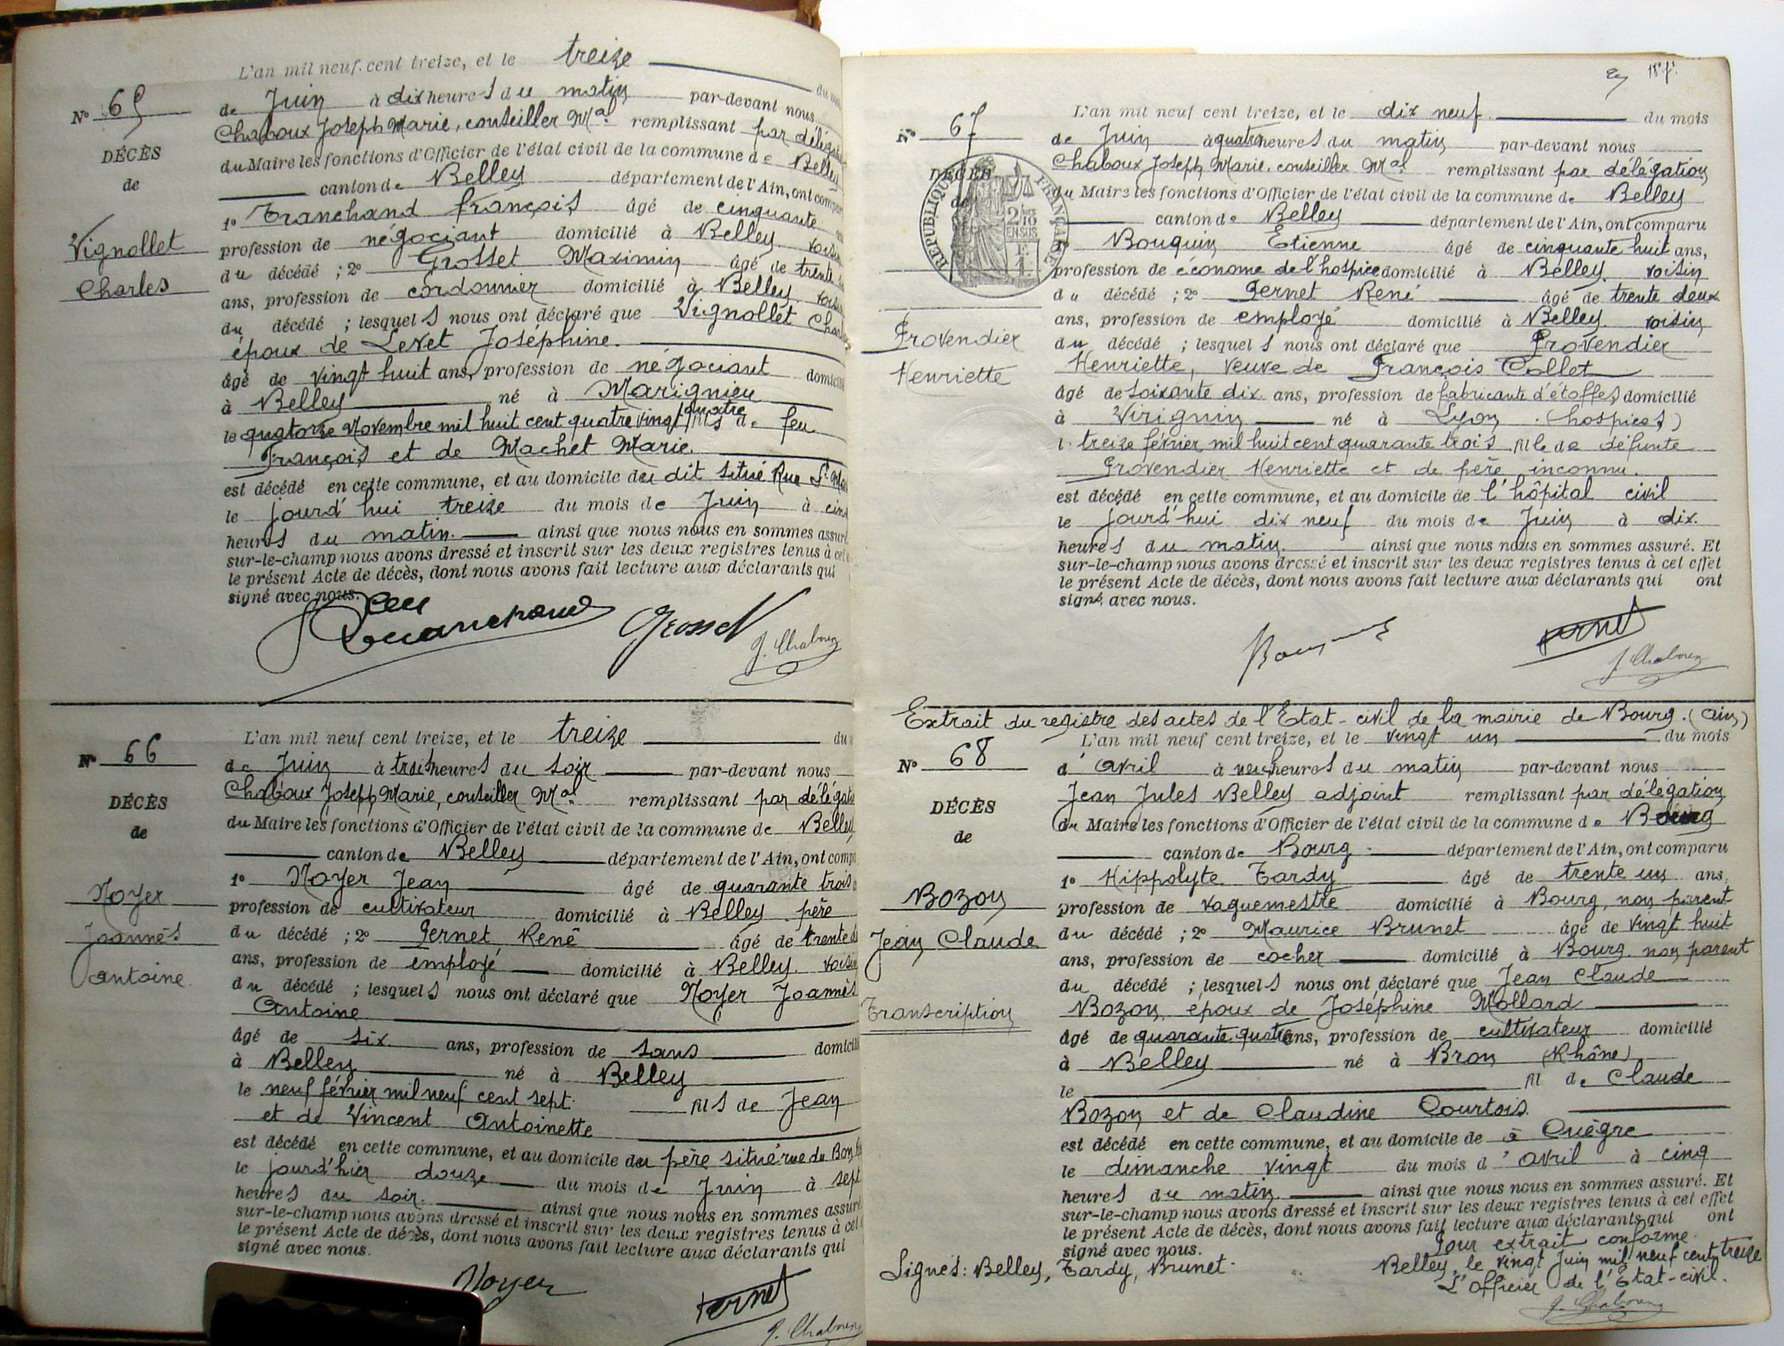 L'an mil neuf cent treize, et le treize
N° 65 de Juin à dix heures du matin par-devant nous
Chaboux Joseph Marie, conseiller Mal remplissant par délég
DÉCÈS
du Maire les fonctions d'Officier de l'état civil de la commune de Belley
de
canton de Belley département de l'Ain, ont comp
1° Tranchand françois âgé de cinquante
Vignollet
profession de négociant domicilié à Belley voisin
Charles
du décédé ; 2° Grosset Maximin âgé de trente
ans, profession de cordonnier domicilié à Belley voisin
du décédé ; lesquels nous ont déclaré que Vignollet Charles
époux de Levet Joséphine.
âgé de vingt huit ans, profession de négociant domicilié
à Belley né à Marignieu
le quatorze Novembre mil huit cent quatre vingt quatre fils de feu
François et de Machet Marie.
est décédé en cette commune, et au domicile du dit situé Rue St
le jourd'hui treize du mois de Juin à cinq
heures du matin. ainsi que nous nous en sommes assuré
sur-le-champ nous avons dressé et inscrit sur les deux registres tenus à cet
le présent Acte de décès, dont nous avons fait lecture aux déclarants qui
signé avec nous.
Tranchand Grosset
J. Chaboux
N° 66 L'an mil neuf cent treize, et le treize du
de Juin à trois heures du soir par-devant nous
DÉCÈS
Chaboux Joseph Marie, conseiller Mal remplissant par déléga
de
du Maire les fonctions d'Officier de l'état civil de la commune de Belley
canton de Belley département de l'Ain, ont comp
Noyer
1° Noyer Jean âgé de quarante trois
Joannès
profession de cultivateur domicilié à Belley père
antoine
du décédé ; 2° Pernet René âgé de trente d
ans, profession de employé domicilié à Belley voisin
du décédé ; lesquels nous ont déclaré que Noyer Joannès
Antoine
âgé de six ans, profession de sans domicilié
à Belley né à Belley
le neuf février mil neuf cent sept fils de Jean
et de Vincent Antoinette
est décédé en cette commune, et au domicile du père situé rue du Bon
le jourd'hier douze du mois de Juin à sept
heures du soir. ainsi que nous nous en sommes assuré
sur-le-champ nous avons dressé et inscrit sur les deux registres tenus à cet
le présent Acte de décès, dont nous avons fait lecture aux déclarants qui
signé avec nous.
Noyer Pernet
J. Chaboux
N° 67 L'an mil neuf cent treize, et le dix neuf du mois
de Juin à quatre heures du matin par-devant nous
Chaboux Joseph Marie, conseiller Mal remplissant par délégation
DÉCÈS
du Maire les fonctions d'Officier de l'état civil de la commune de Belley
de
RÉPUBLIQUE FRANÇAISE
canton de Belley département de l'Ain, ont comparu
1° Bouquin Etienne âgé de cinquante huit ans,
profession de économe de l'hospice domicilié à Belley, voisin
du décédé ; 2° Pernet René âgé de trente deux
ans, profession de employé domicilié à Belley voisin
Provendier
du décédé ; lesquels nous ont déclaré que Provendier
Henriette
Henriette, veuve de François Collet
âgé de soixante dix ans, profession de fabricante d'étoffes domicilié
à Virignin né à Lyon (hospices)
le treize février mil huit cent quarante trois fille de défunte
Provendier Henriette et de père inconnu.
est décédé en cette commune, et au domicile de l'hôpital civil
le jourd'hui dix neuf du mois de Juin à dix
heures du matin. ainsi que nous nous en sommes assuré. Et
sur-le-champ nous avons dressé et inscrit sur les deux registres tenus à cet effet
le présent Acte de décès, dont nous avons fait lecture aux déclarants qui ont
signé avec nous.
Bouquin Pernet
J. Chaboux
Extrait du registre des actes de l'Etat-civil de la mairie de Bourg. (Ain)
N° 68 L'an mil neuf cent treize, et le vingt un du mois
d'avril à neuf heures du matin par-devant nous
DÉCÈS
Jean Jules Belley adjoint remplissant par délégation
de
du Maire les fonctions d'Officier de l'état civil de la commune de Bourg
canton de Bourg département de l'Ain, ont comparu
Bozon
1° Hippolyte Tardy âgé de trente un ans,
profession de vaguemestre domicilié à Bourg, non parent
Jean Claude
du décédé ; 2° Maurice Brunet âgé de vingt huit
ans, profession de cocher domicilié à Bourg non parent
du décédé ; lesquels nous ont déclaré que Jean Claude
Transcription
Bozon, époux de Joséphine Mollard
âgé de quarante quatre ans, profession de cultivateur domicilié
à Belley né à Bron (Rhône)
le fil de Claude
Bozon et de Claudine Courtois
est décédé en cette commune, et au domicile de à Cuègre
le dimanche vingt du mois d'avril à cinq
heures du matin. ainsi que nous nous en sommes assuré. Et
sur-le-champ nous avons dressé et inscrit sur les deux registres tenus à cet effet
le présent Acte de décès, dont nous avons fait lecture aux déclarants qui ont
signé avec nous. Pour extrait conforme.
Signés: Belley, Tardy, Brunet. Belley, le vingt Juin mil neuf cent treize
L'officier de l'Etat-civil.
J. Chaboux